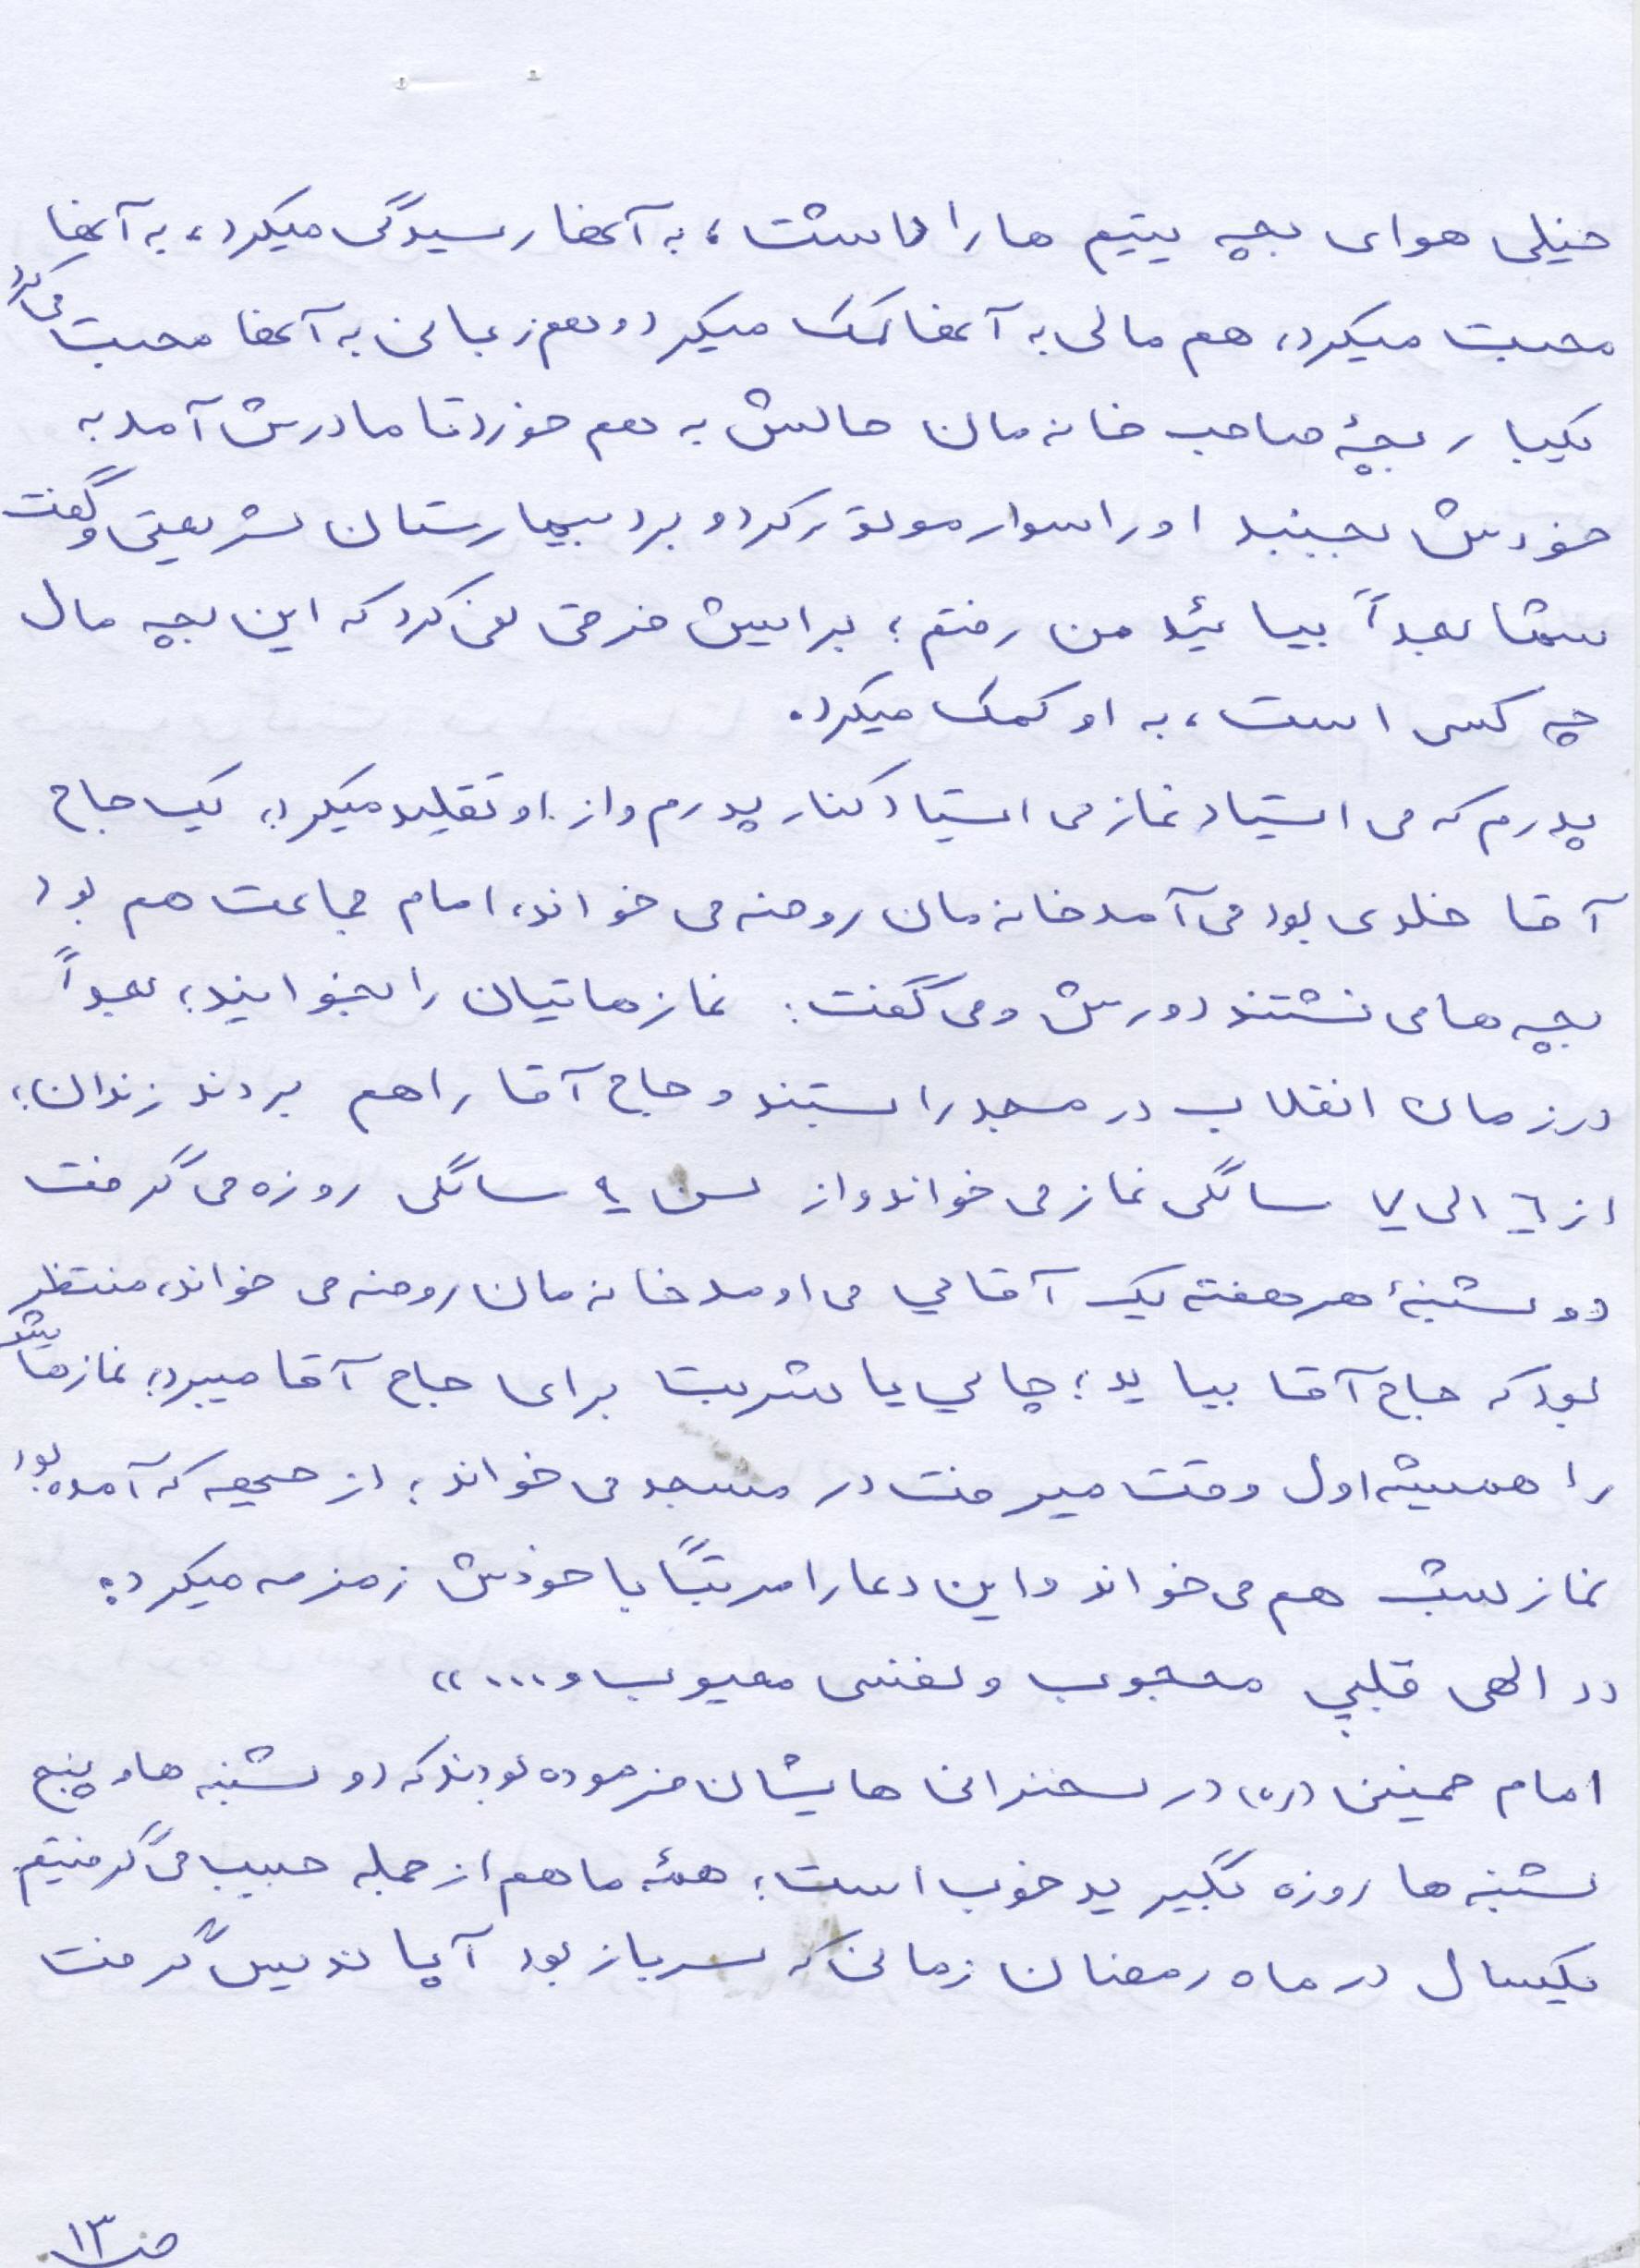 خیلی هوای بچه یتیم ها را داشت، به آنها رسیدگی میکرد، به آنها
محبت میکرد، هم مالی به آنها کمک میکرد و هم زبانی به آنها محبت می کرد
یکبار بچۀ صاحب خانه مان حالش به هم خورد تا مادرش آمد به
خودش بجنبد او را سوار موتور کرد و برد بیمارستان شریعتی و گفت
شما بعداً بیائید من رفتم؛ برایش فرقی نمی کرد که این بچه مال
چه کسی است، به او کمک میکرد.
پدرم که می ایستاد نماز می ایستاد کنار پدرم و از او تقلید میکرد، یک حاج
آقا خلدی بود می آمد خانه مان روضه می خواند، امام جماعت هم بود
بچه ها می نشستند دورش و می گفت: نمازهاتیان را بخوانید، بعداً
در زمان انقلاب در مسجد را بستند و حاج آقا را هم بردند زندان؛
از ٦ الی ٧ سالگی نماز می خواند و از سن ٩ سالگی روزه می گرفت
دوشنبۀ هر هفته یک آقایی می اومد خانه مان روضه می خواند، منتظر
بود که حاج آقا بیاید؛ چایی یا شربت برای حاج آقا میبرد؛ نمازهایش
را همیشه اول وقت میرفت در مسجد می خواند؛ از جبهه که آمده بود
نماز شب هم می خواند و این دعا را مرتباً با خودش زمزمه میکرد:
«الهی قلبی محجوب و نفسی معیوب و...»
امام خمینی (ره) در سخنرانی هایشان فرموده بودند که دوشنبه ها و پنج
شنبه ها روزه بگیرید خوب است؛ همۀ ما هم از جمله حبیب می گرفتیم
یکسال در ماه رمضان زمانی که سرباز بود آپاندیس گرفت
ص ١٣